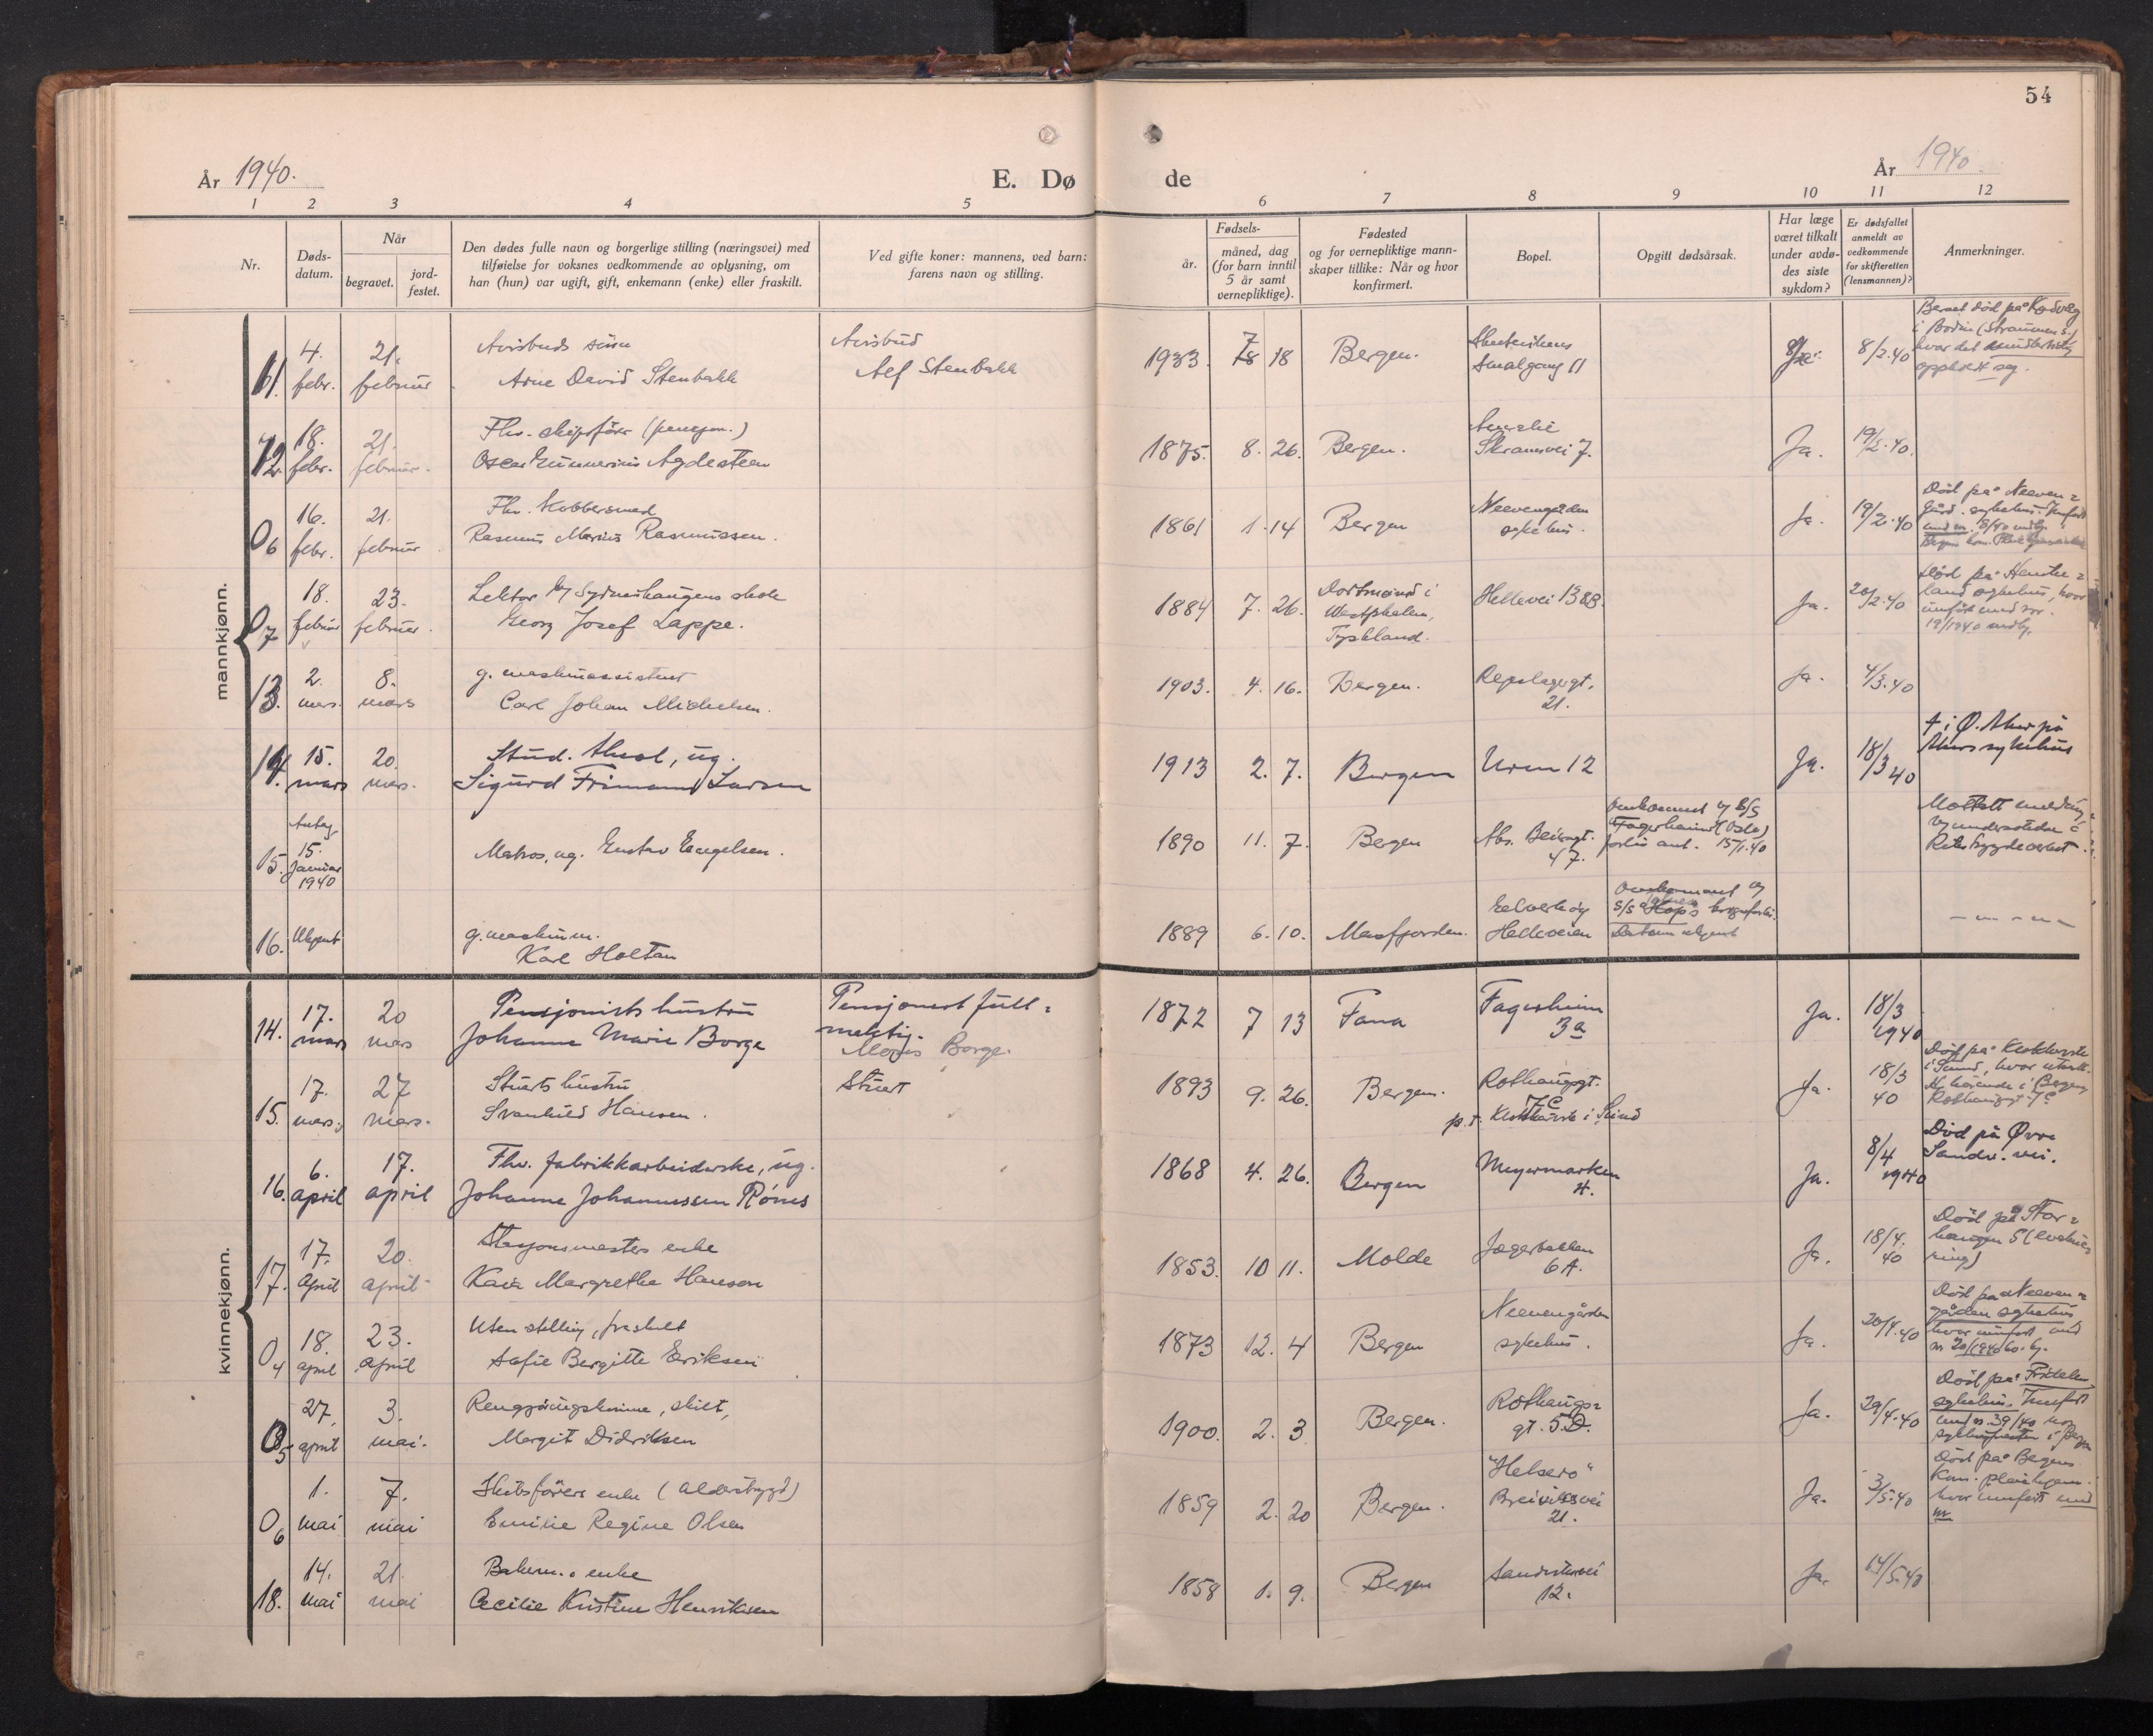 54
År 1940.
E. Dø de
År 1940
1 2 3 4 5 6 7 8 9 10 11 12
Nr.
Døds-
datum.
Når
begravet.
jord-
festet.
Den dødes fulle navn og borgerlige stilling (næringsvei) med
tilføielse for voksnes vedkommende av oplysning, om
han (hun) var ugift, gift, enkemann (enke) eller fraskilt.
Ved gifte koner: mannens, ved barn:
farens navn og stilling.
Fødsels-
år.
måned, dag
(for barn inntil
5 år samt
vernepliktige).
Fødested
og for vernepliktige mann-
skaper tillike: Når og hvor
konfirmert.
Bopel.
Opgitt dødsårsak.
Har læge
været tilkalt
under avdø-
des siste
sykdom?
Er dødsfallet
anmeldt av
vedkommende
for skifteretten
(lensmannen)?
Anmerkninger.
mannkjønn.
11. 4. febr. 21. februar
Avisbuds sønn
Arne David Stenbakk
Avisbud
Alf Stenbakk
1933. 18 Bergen.
Smalgang 11
8/2.40
12. 18. febr. 21. februar.
Fhv. skipsfører (pensjon.)
Oscar Gunnerius Agdesteen
1875. 8. 26. Bergen.
Skramsvei 7.
Ja. 19/2.40.
06 16. febr. 21. februar
Fhv. Kobbersmed
Rasmus Marius Rasmussen.
1861 1. 14 Bergen
Neevengården
sykehus.
Ja. 19/2.40
Død på Neeven=
gård. sykehus.
07 18. februar 23. februar.
Lektor v/ Sydneshaugens skole
Georg Josef Lappe.
1884 7. 26. Dortmund i
Westphalen,
Tyskland.
Hellevei 138B.
Ja. 20/2.40
Død på Hauke=
land sykehus, hvor
innført med nr.
19/1940 mkj.
13. 2. mars. 8. mars
g. maskinassistent
Carl Johan Michelsen.
1903. 4. 16. Bergen.
Repslagergt.
21.
Ja. 4/3.40
14. 15. mars 20. mars.
Stud. , ug.
Sigurd Frimann Larsen
1913 2. 7. Bergen Uren 12
Ja. 18/3 40
† i Ø. Aker på
Akers sykehus
15. Antag. 15. Januar 1940
Matros, ug. Gustav Engelsen.
1890 11. 7. Bergen
47.
Omkommet v/ B/S
Fagerheim (Oslo)
forlis ant. 15/1.40
16. Ukjent
g. maskinm.
Karl Holtan
1889 6. 10. Masfjorden.
Helleveien
Omkommet v/
S/S Hop's krigsforlis.
Datum ukjent
kvinnekjønn.
14. 17. mars 20 mars
Pensjonists hustru
Johanne Marie Borge
Pensjonert full=
mektig.
Borge.
1872 7 13 Fana
Fagerheim
3a
Ja. 18/3 1940
15. 17. mars. 27 mars.
Stuerts hustru
Svanhild Hansen.
Stuert
1893 9. 26. Bergen.
Rothaugsgt.
7C
Ja. 18/3 40
16. 6. april 17. april
Fhv. fabrikkarbeiderske, ug.
Johanne Johannessen Rönes
1868 4. 26. Bergen
Meyermarken
4.
Ja. 8/4 1940
Död på Øvre
Sandv. vei.
17. 17. April 20. april
Stasjonsmesters enke
Kaia Margrethe Hanson
1853. 10 11. Molde
Jægerbakken
6A.
Ja. 18/4. 40
04 18. april 23. april
Uten stilling, fraskilt
Sofie Bergitte Eriksen
1873 12. 4 Bergen
Neevengården
sykehus.
Ja. 20/4.40
Død på Neeven=
gården sykehus
hvor innført med
05 27. april 3. mai.
Rengjøringskvinne, skilt,
Margit Didriksen
1900. 2. 3 Bergen.
Rothaugs=
gt. 5D.
Ja. 29/4.40
06 1. mai 7. mai
Skibsförers enke (alderstrygd)
Emilie Regine Olsen
1859 2. 20 Bergen.
"Helsero"
Breiviksvei
21.
Ja. 3/5.40
Død på Bergens
Kom. pleiehjem.
hvor innført med
nr
18. 14. mai 21. mai
Bakerm. enke
Cecilie Kristine Henriksen
1858 1. 9. Bergen
Sandviksvei
12.
Ja. 14/5.40